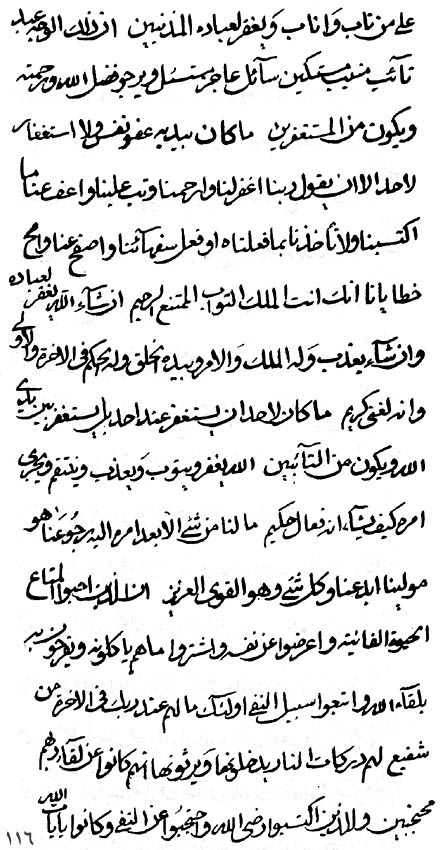 على من تاب واناب ويغفر لعباده المذنبين ان ذلك الوجه عبد
تائب منيب مسكين سائل عاجز ويرجو فضل الله ورحمته
ويكون من المستغفرين ما كان بيديه عفو نفس ولا استغفار
لاحد الا ان يقول ربنا اغفر لنا وارحمنا وتب علينا واعف عنا ما
اكتسبنا ولا تأخذنا بما فعلناه او فعل سفهائنا واصفح عنا وامح
خطايانا انك انت الملك التواب الممتنع الرحيم ان شاء الله يغفر لعباده
وان شاء يعذب وله الملك والامر وبيده الخلق وله الحكم فى الاخرة والاولى
وانه لغنى كريم ما كان لاحد ان يستغفر عند احد بل يستغفر بين يدى
الله ويكون من التائبين الله يغفر ويتوب ويعذب وينتقم ويجرى
امره كيف يشاء انه فعال حكيم ما لنا من شئ الا بعد امره اليه رجوعنا هو
مولينا ابدعنا وكل شئ وهو القوى العزيز ان الذين احبوا المتاع
الحيوة الفانية واعرضوا عن نفسه واشتروا ما هم ياكلونه ويفرحون به
بلقاء الله واتبعوا سبيل النفى اولئك ما لهم عند ربك فى الاخرة من
شفيع لهم دركات النار يدخلونها ويرثونها انهم كانوا عن لقاء ربهم
محتجبين والذين اكتسبوا رضى الله واحتجبوا عن النفى وكانوا بايات الله
١١٦